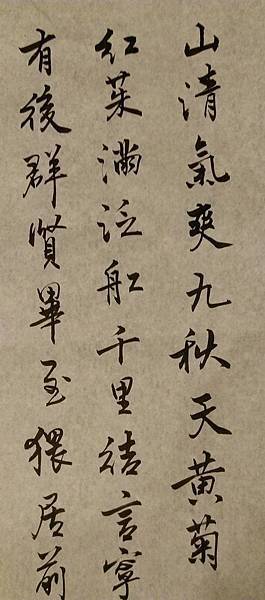 山清氣爽九秋天黃菊
紅茱滿泛船千里結言寧
有後群賢畢至猥居前